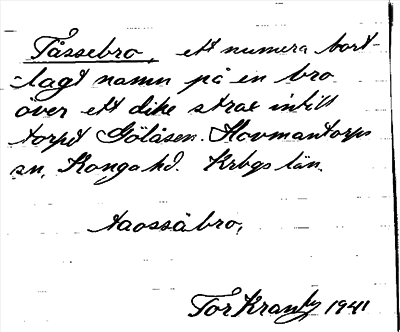 Tåssebro, ett numera bort-
lagt namn på en bro
över ett dike strax intill
torpet Gölåsen. Hovmantorps
sn, Konga hd. Krbgs län.
taossäbro,
Tor Krantz 1941